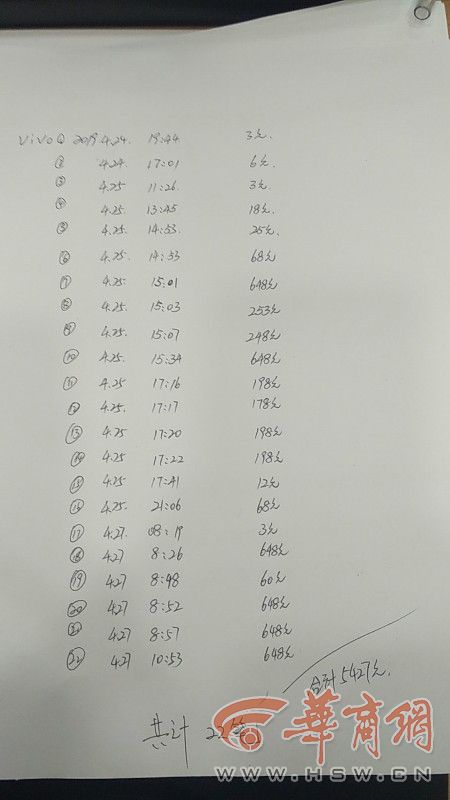 ViVo① 2019 4.24. 19:44 3元.
② 4.24 17:01 6元.
③ 4.25 11:26. 3元.
④ 4.25 13:45 18元.
⑤ 4.25 14:53. 25元.
⑥ 4.25. 14:53 68元
⑦ 4.25 15:01 648元
⑧ 4.25 15:03 253元
⑨ 4.25 15:07 248元
⑩ 4.25 15:34 648元
⑪ 4.25 17:16 198元
⑫ 4.25. 17:17 178元
⑬ 4.25 17:20 198元
⑭ 4.25 17:22 198元
⑮ 4.25 17:41 12元
⑯ 4.25. 21:06 68元
⑰ 4.27 08:19 3元
⑱ 4.27 8:26 648元
⑲ 4.27 8:48 60元
⑳ 4.27 8:52 648元
㉑ 4.27 8:57 648元
㉒ 4.27 10:53 648元
合计5427元.
共计 22笔
華商網
WWW.HSW.CN